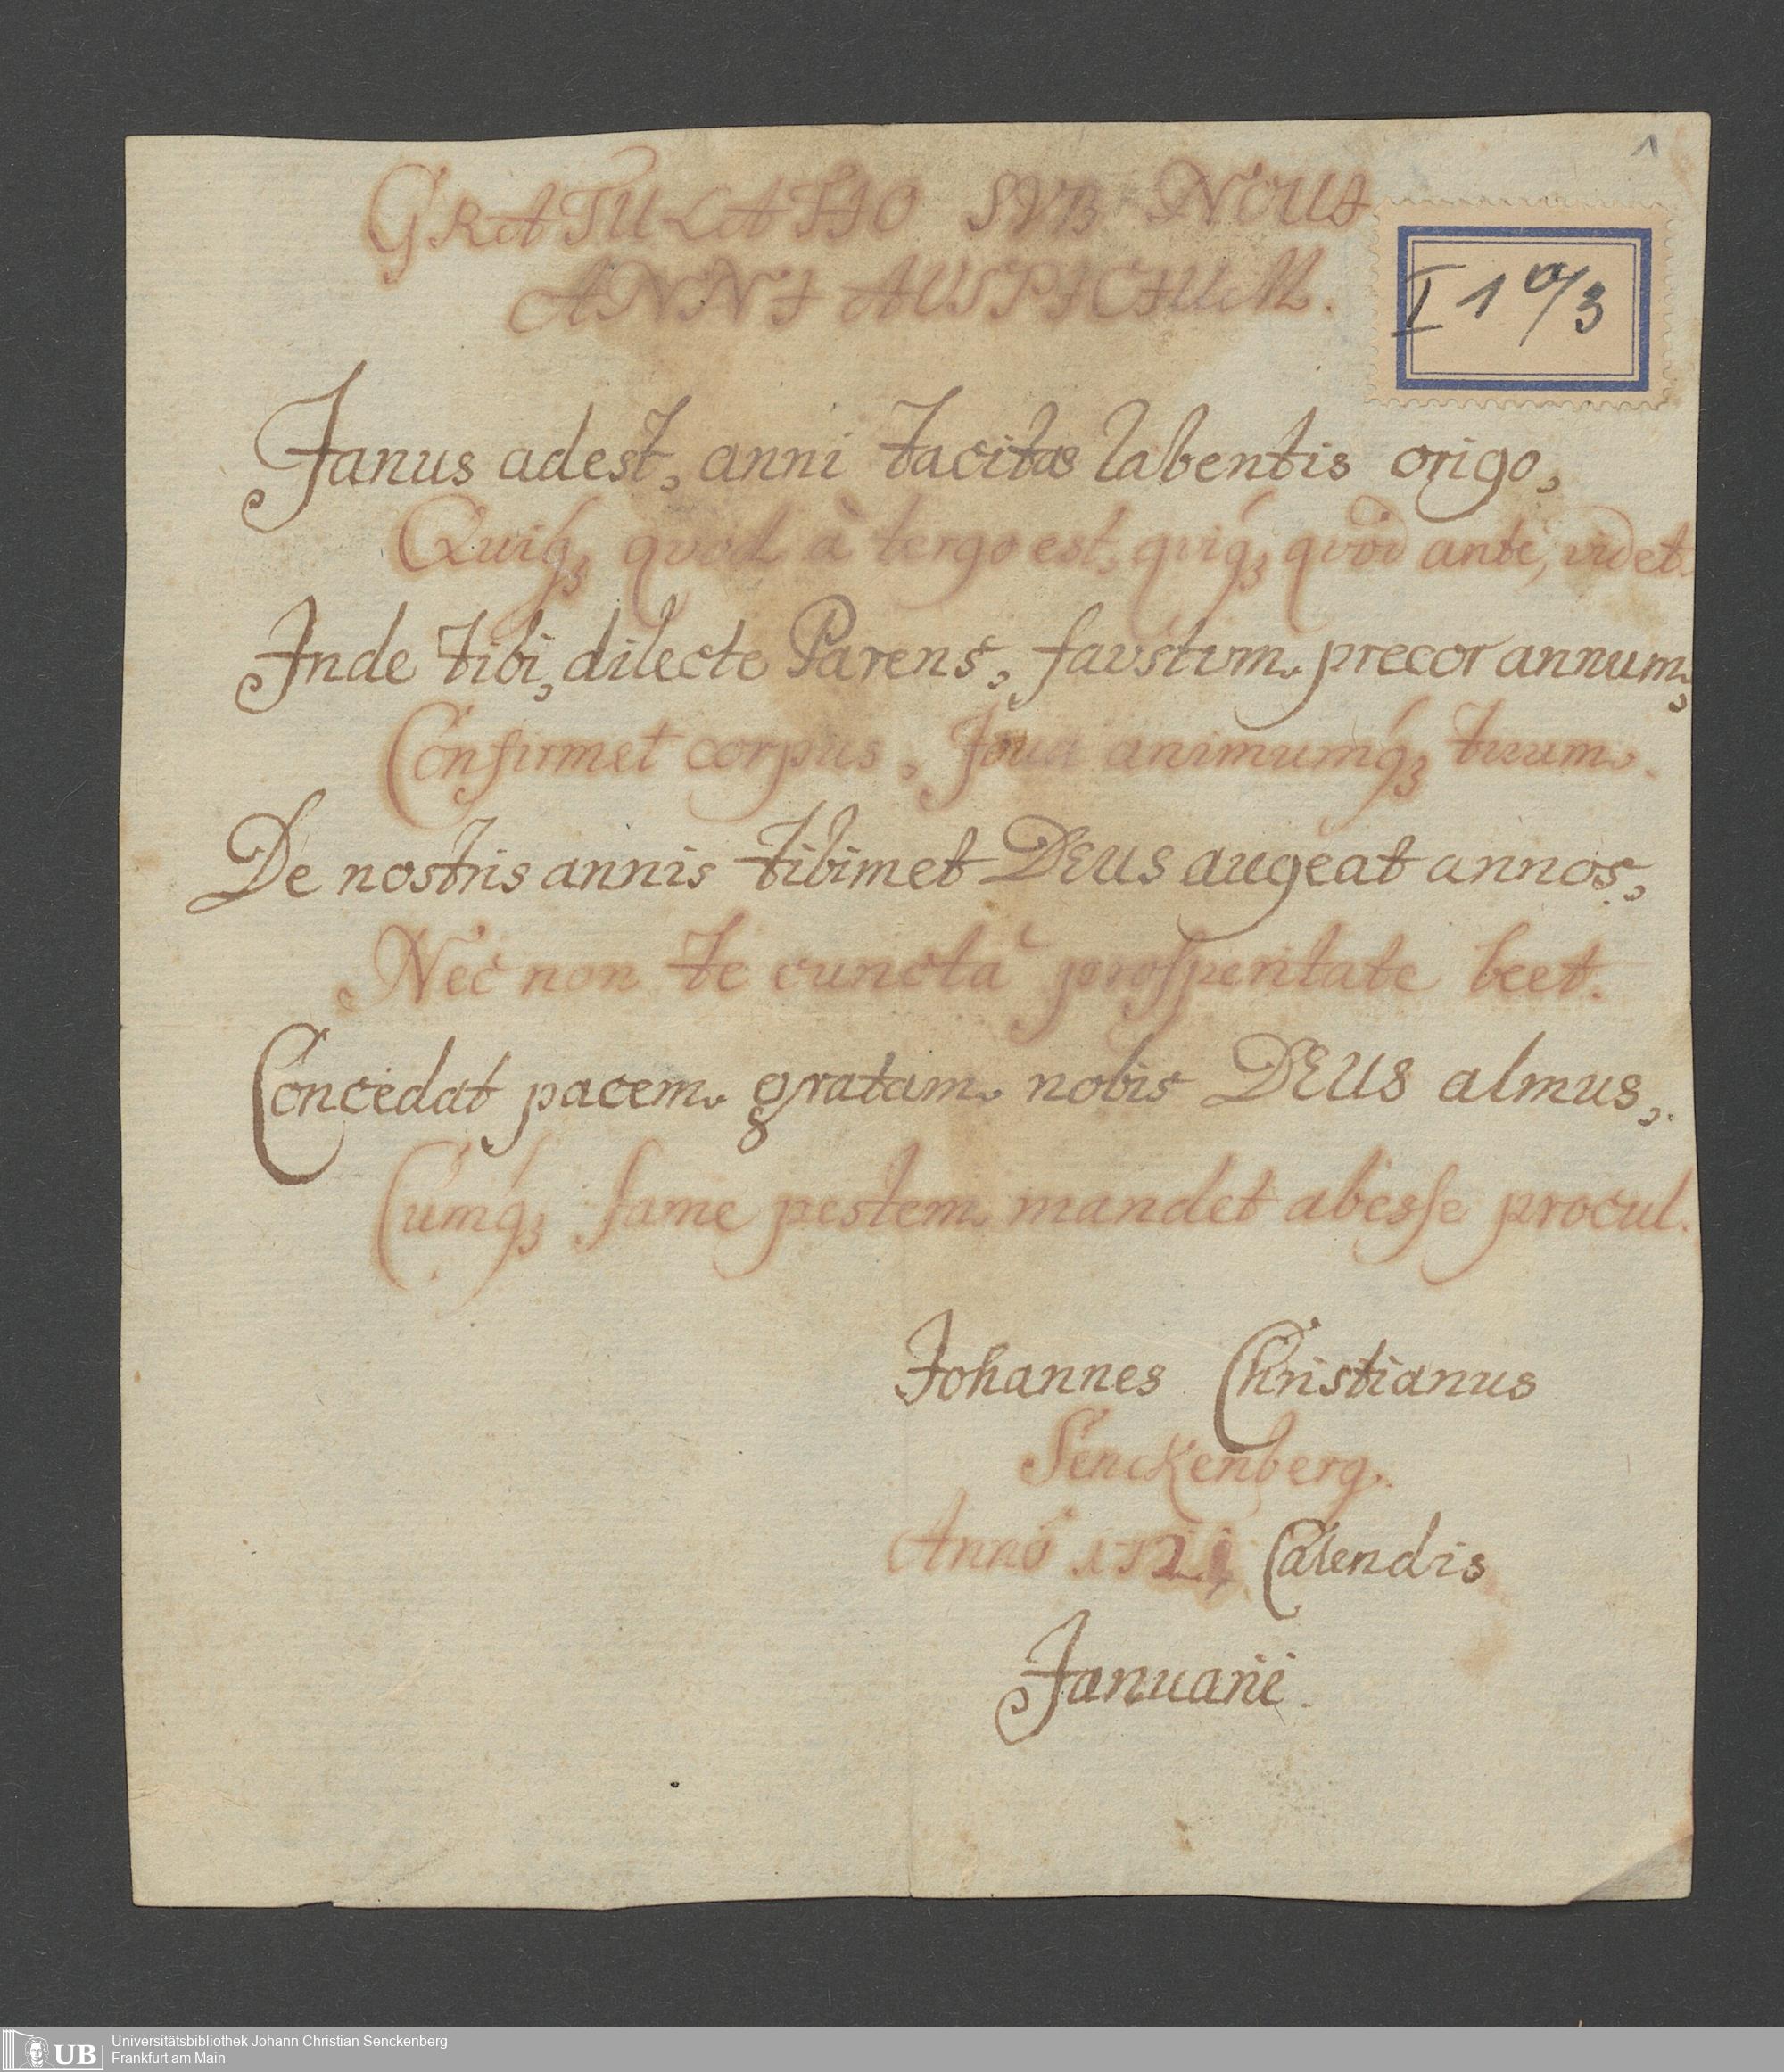 1
GRATULATIO SVB NOUI
ANNI AUSPICIUM.
I 1 a/3
Janus adest, anni tacitae labentis origo,
Quiq́ꝫ quod à tergo est, qviq́ꝫ qvod ante, videt.
Inde tibi, dilecte Parens, favstvm precor annum,
Confirmet corpus, Joua animumq́ꝫ tuum.
De nostris annis tibimet DEUS augeat annos,
Nec non te cuncta prosperitate beet.
Concedat pacem gratam nobis DEUS almus,
Cumq́ꝫ fame pestem mandet abesse procul.
Johannes Christianus
Senckenberg.
Anno Calendis
Januarii.
UB
Universitätsbibliothek Johann Christian Senckenberg
Frankfurt am Main